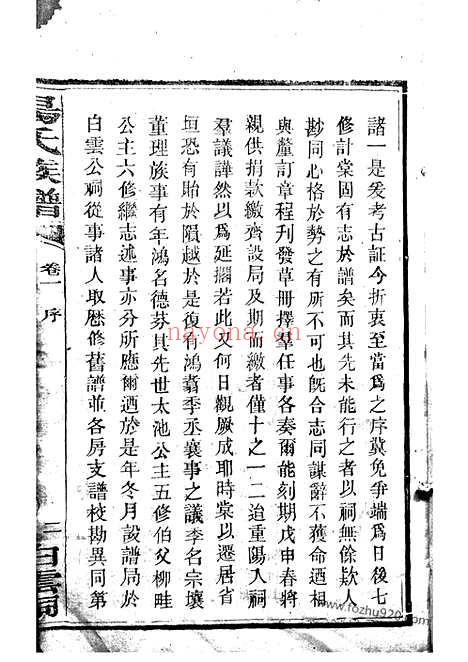 諸一是爰考古証今折衷至當爲之序冀免爭端爲日後七
修計棠固有志於譜矣而其先未能行之者以祠無餘欵人
尠同心格於勢之有所不可也旣合志同謀辭不獲命迺相
與釐訂章程刊發草冊擇羣任事各奏爾能刻期戊申春將
親供捐款繳齊設局及期而繳者僅十之一二迨重陽入祠
羣議譁然以爲延擱若此又何日觀厥成耶時棠以遷居省
垣恐有貽於隕越於是復有鴻翥季丞襄事之議季名宗壤
董理族事有年鴻名德芬其先世太池公主五修伯父柳畦
公主六修繼志述事亦分所應爾迺於是年冬月設譜局於
白雲公祠從事諸人取歷修舊譜並各房支譜校勘異同第
氏族譜
卷一 序
白雲祠
nayona.cn
www.fozhu920.com